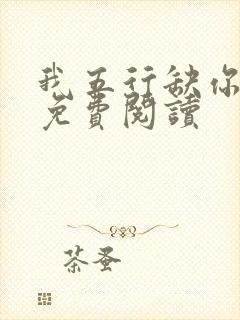 我五行缺你
免費閱讀
茶蚤